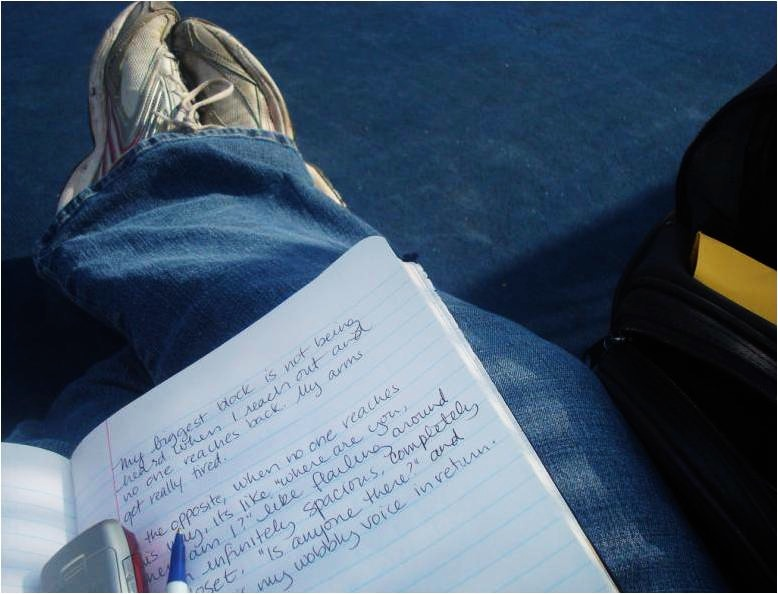 My biggest block is not being
heard when I reach out and
no one reaches back. My arms
get really tired.
the opposite, when no one reaches
way, its like "where are you,
am I?" like flailing around
infinitely spacious, completely
"Is anyone there?" and
my wobbly voice in return.